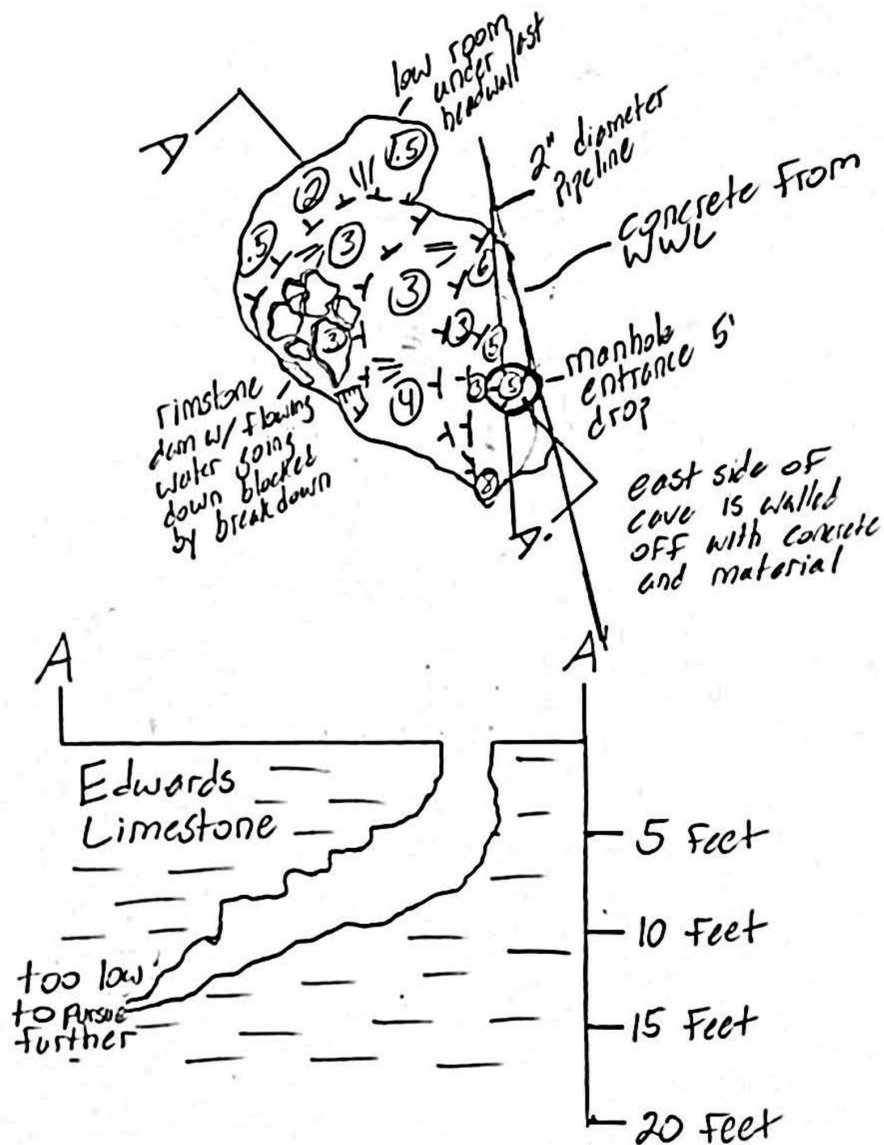 low room
under east
headwall
A
2" diameter
pipeline
concrete from
WWL
1.5
2
.5
3
3
6
3
5
3
4
3
5
8
manhole
entrance 5'
drop
rimstone
dam w/ flowing
water going
down blocked
by breakdown
east side of
cave is walled
off with concrete
and material
A'
A
A'
Edwards
Limestone
5 feet
10 feet
too low
to pursue
further
15 feet
20 feet